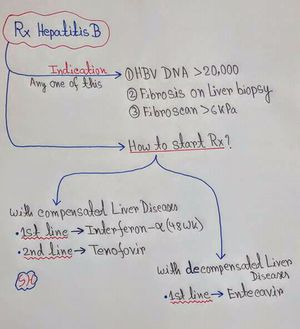 Rx Hepatitis B
Indication
Any one of this
① HBV DNA >20,000
② Fibrosis on Liver biopsy
③ Fibroscan >6kPa
How to start Rx?
with compensated Liver Diseases
• 1st line → Interferon-α (48wk)
• 2nd line → Tenofovir
with decompensated Liver
Diseases
• 1st line → Entecavir